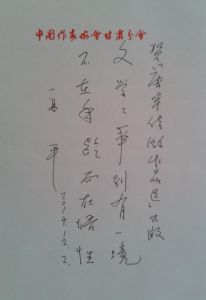 中国作家协會甘肃分會
贺唐宇佳作品选出版
文学之事别有一境
不在年龄而在悟性
高平
2014.2.2.